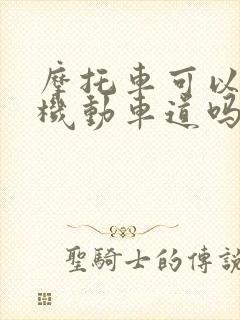 摩托車可以
機動車道吗
聖騎士的傳說